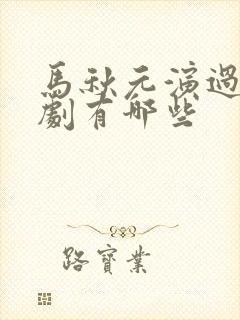 馬秋元演過
劇有哪些
路寶業